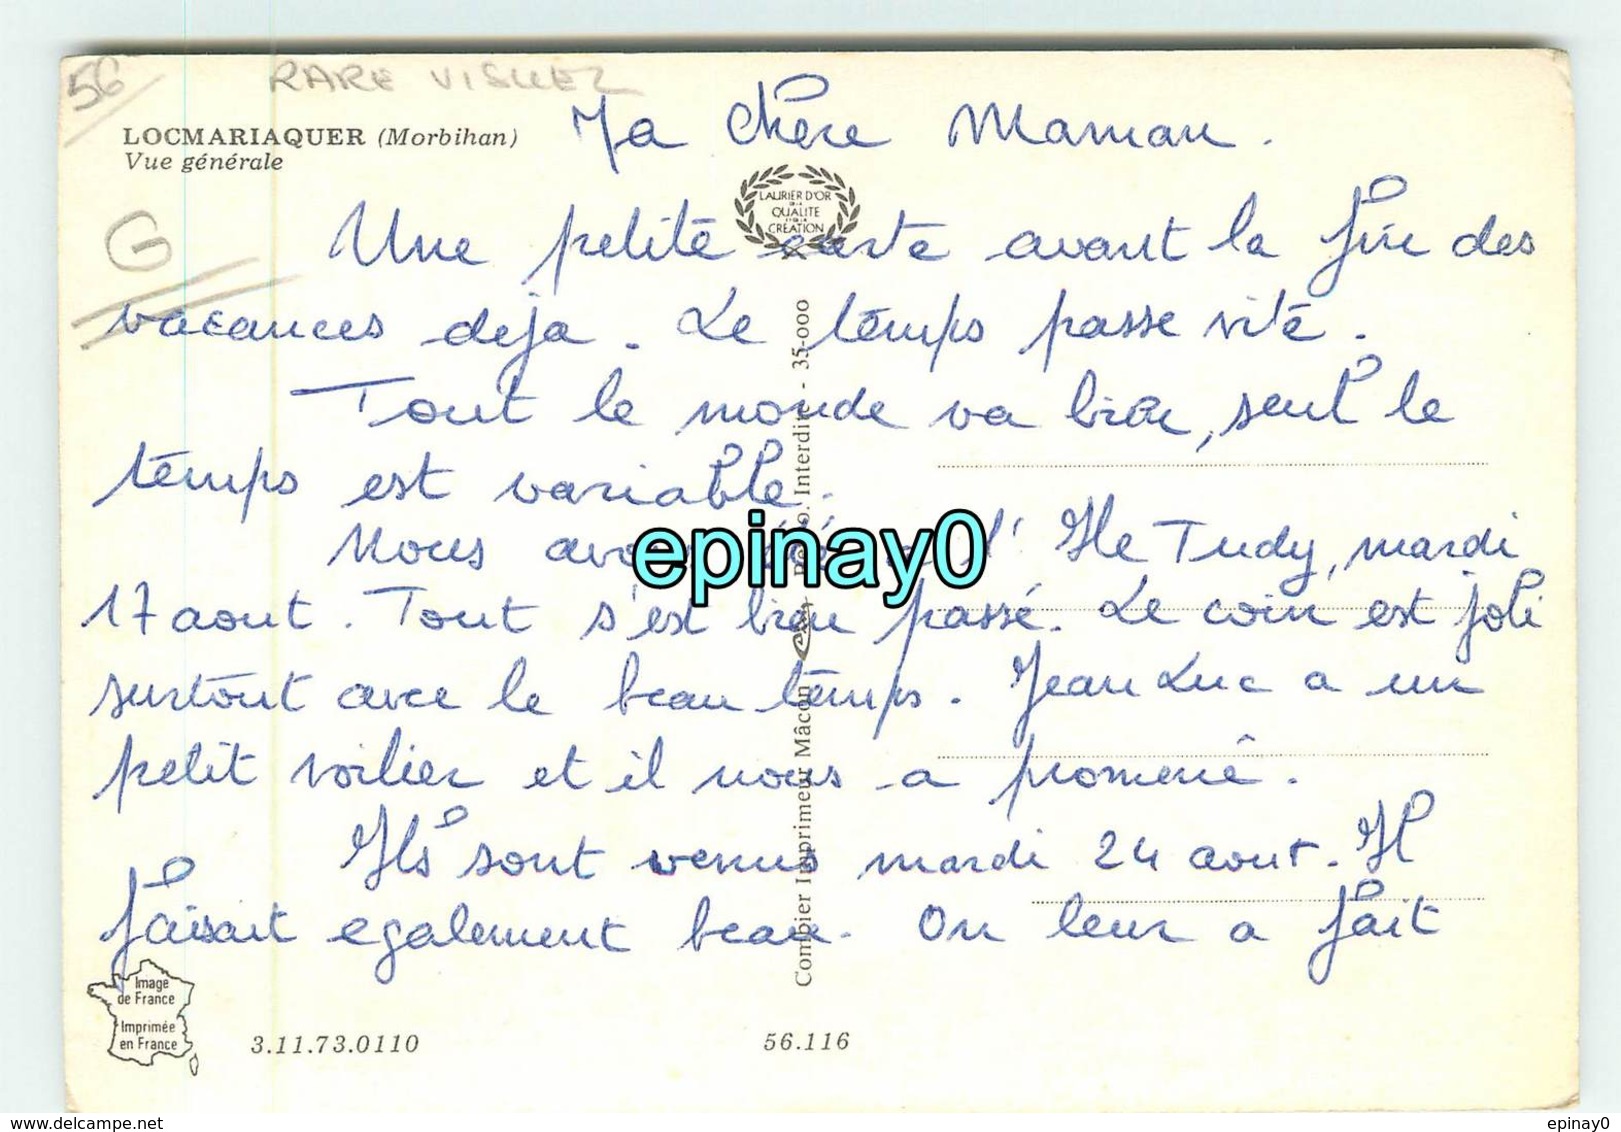 56
RARE VISUEL
LOCMARIAQUER (Morbihan)
Vue générale
G
Ma chère Maman.
LAURIER D'OR
DE LA
QUALITE
ET DE LA
CREATION
Une petite carte avant la fin des
vacances deja. Le temps passe vite.
Tout le monde va bien, seul le
temps est variable.
Nous avons été a l'Ile Tudy, mardi
17 aout. Tout s'est bien passé. Le coin est joli
surtout avec le beau temps. Jean Luc a un
petit voilier et il nous a promené.
Ils sont venus mardi 24 aout. Il
faisait egalement beau. On leur a fait
Combier Imprimeur Mâcon Interdite - 35-000
epinay0
Image
de France
Imprimée
en France
3.11.73.0110
56.116
www.delcampe.net
epinay0